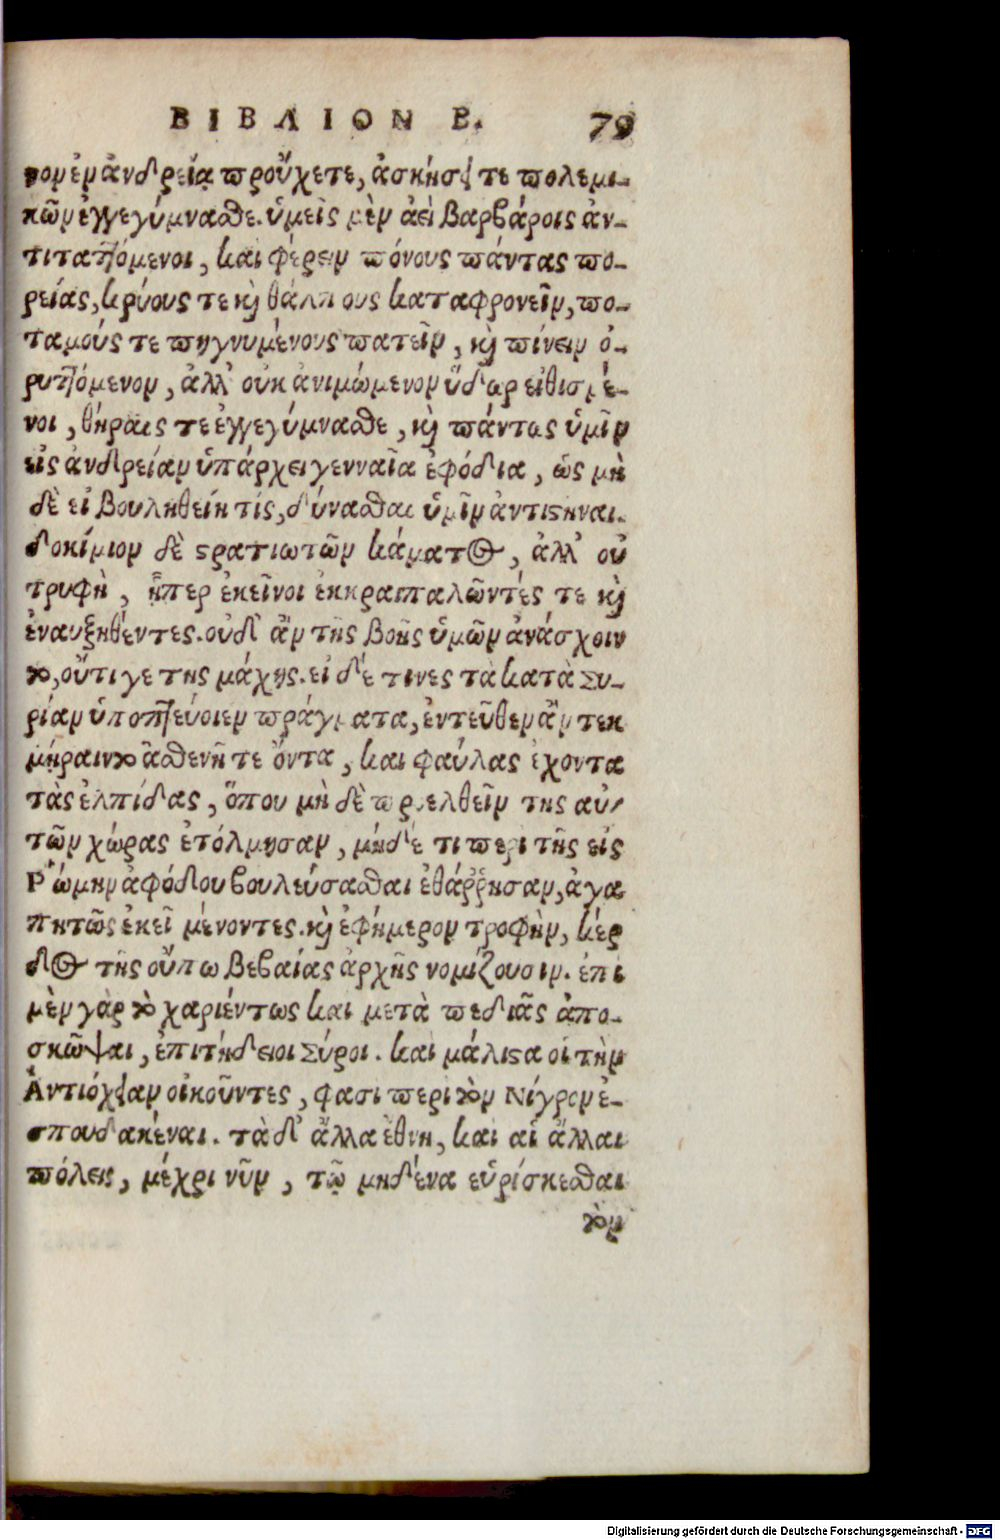 ΒΙΒΛΙΟΝ Β. 79
τομ ἐμ ἀνδρείᾳ προὔχετε, ἀσκήσει τε πολεμι-
κῶμ ἐγγεγύμναϑε. ὑμεῖς μὲμ ἀεὶ βαρβάροις ἀν-
τιταττόμενοι, καὶ φέρειμ πόνους πάντας πο-
ρείας, κρύους τε καὶ θάλπους καταφρονεῖμ, πο-
ταμούς τε πηγνυμένους πατεῖμ, καὶ πίνειμ ὀ-
ρυττόμενομ, ἀλλ' οὐκ ἀνιμώμενομ ὕδωρ εἰθισμέ-
νοι, θήραις τε ἐγγεγύμναϑε, καὶ πάντως ὑμῖμ
εἰς ἀνδρείαμ ὑπάρχει γενναῖα ἐφόδια, ὡς μη
δὲ εἰ βουληθείη τίς, δύναϑαι ὑμῖμ ἀντιϛηναι.
δοκίμιομ δὲ ϛρατιωτῶμ κάματος, ἀλλ' οὐ
τρυφὴ, ᾗπερ ἐκεῖνοι ἐκκραιπαλῶντές τε καὶ
ἐναυξηθέντες. οὐδ' ἂμ τῆς βοῆς ὑμῶμ ἀνάσχοιν
το, οὔτι γε της μάχης. εἰ δέ τινες τὰ κατὰ Συ-
ρίαμ ὑποπτεύοιεμ πράγματα, ἐντεῦθεμ ἂμ τεκ
μήραιντο ἀϑενῆ τε ὄντα, καὶ φαύλας ἔχοντα
τὰς ἐλπίδας, ὅπου μὴ δὲ προελθεῖμ της αὑ-
τῶμ χώρας ἐτόλμησαμ, μήδέ τι περὶ τῆς εἰς
Ῥώμημ ἀφόδου βουλεύσαϑαι ἐθάῤῥησαμ, ἀγα
πητῶς ἐκεῖ μένοντες. καὶ ἐφήμερομ τροφὴμ, κέρ
δος τῆς οὔπω βεβαίας ἀρχῆς νομίζουσιμ. ἐπὶ
μὲμ γὰρ τὸ χαριέντως καὶ μετὰ πεδιᾶς ἀπο-
σκῶψαι, ἐπιτήδειοι Σύροι. καὶ μάλιϛα οἱ τὴμ
Ἀντιόχειαμ οἰκοῦντες, φασὶ περὶ τὸμ Νίγρομ ἐ-
σπουδακέναι. τὰ δ' ἄλλα ἔθνη, καὶ αἱ ἄλλαι
πόλεις, μέχρι νῦμ, τῷ μηδένα εὑρίσκεϑαι
τὸμ
Digitalisierung gefördert durch die Deutsche Forschungsgemeinschaft - DFG